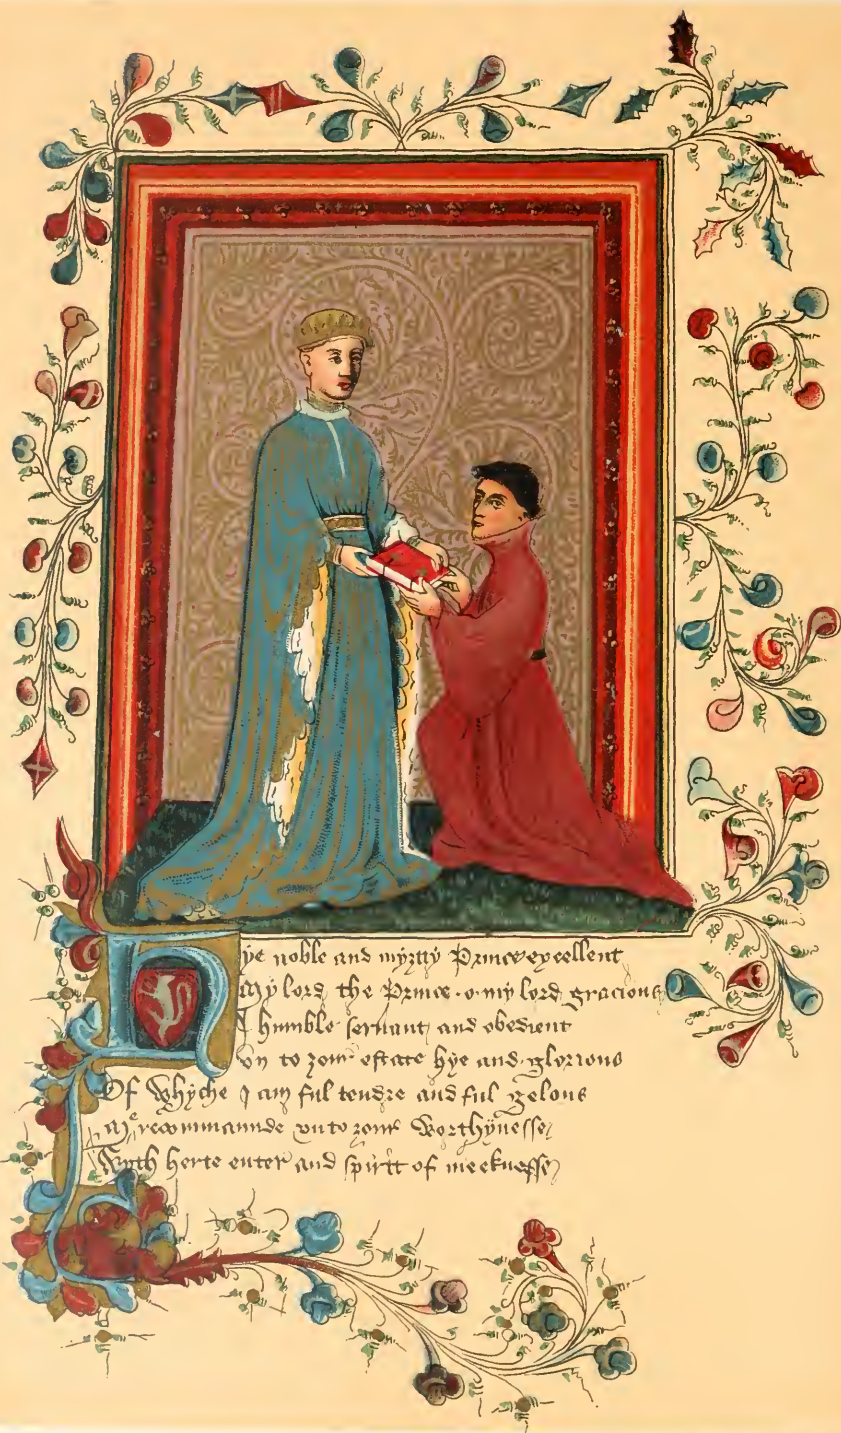 Hye noble and myʒtty Prince excellent
My lord the Prince · o · my lord gracious
I humble servant and obedient
Vn to ʒour estate hye and glorious
Of Whyche I am ful tendre and ful gelous
Me recommaunde vnto ʒour Worthynesse
Wyth herte enter and spirit of meeknesse